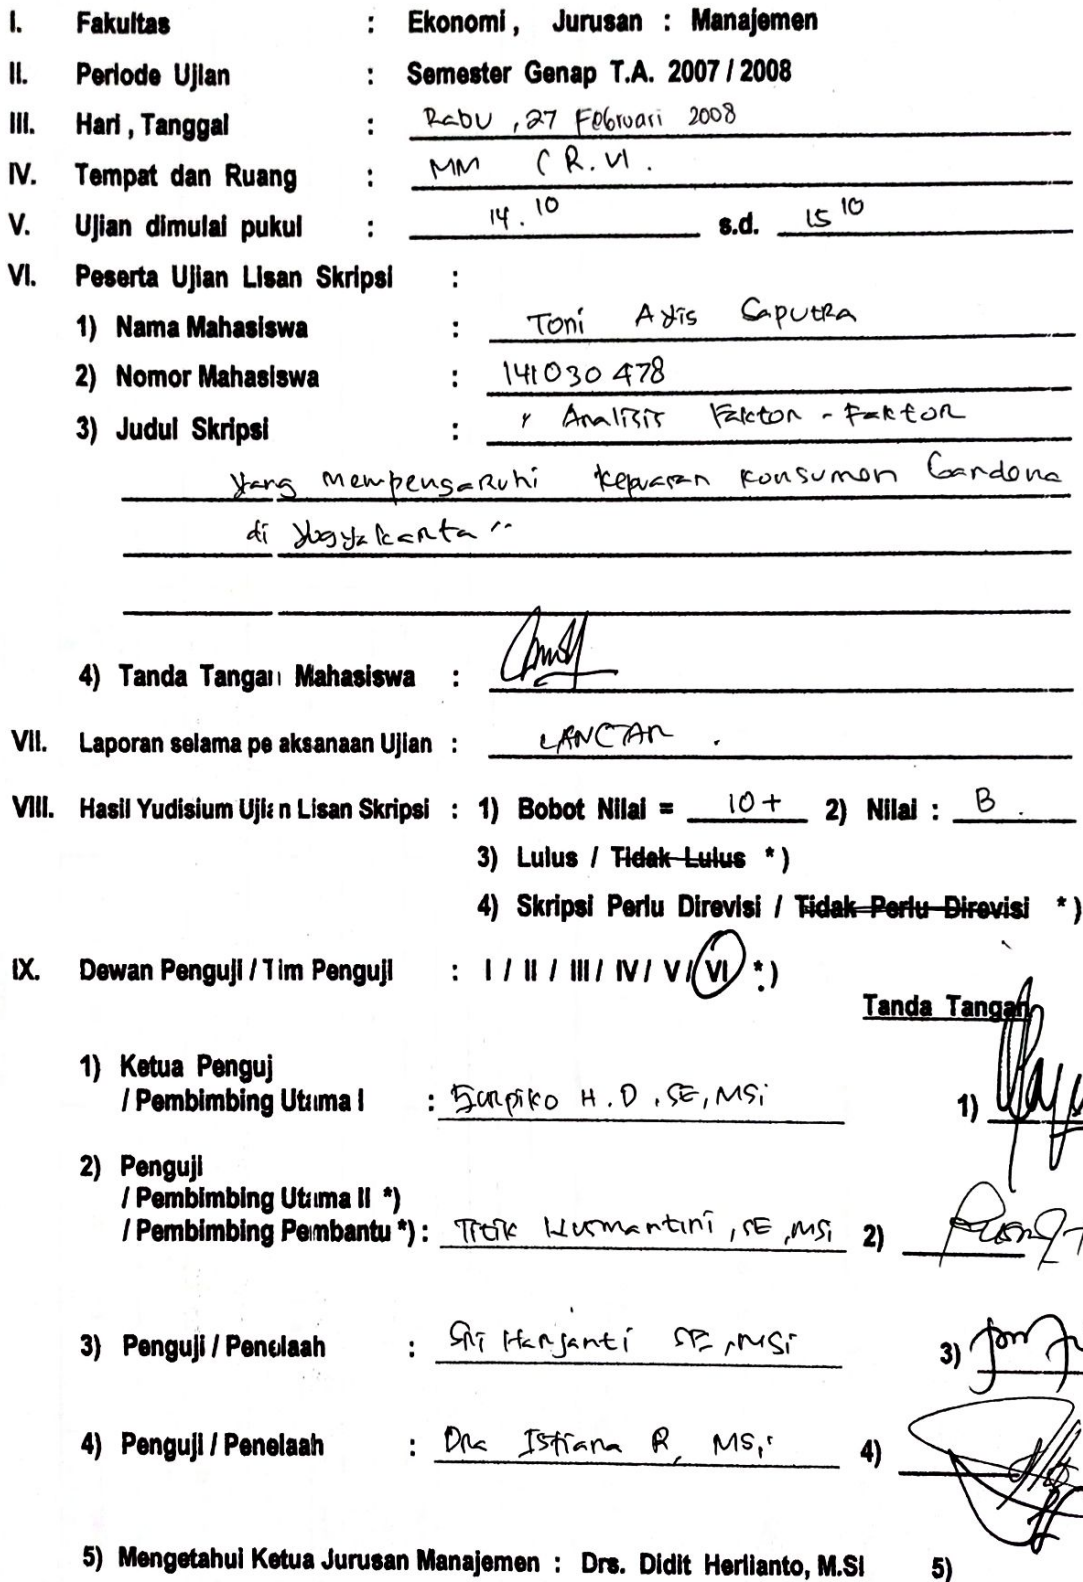 I. Fakultas : Ekonomi, Jurusan : Manajemen
II. Periode Ujian : Semester Genap T.A. 2007 / 2008
III. Hari, Tanggal : Rabu, 27 Februari 2008
IV. Tempat dan Ruang : MM ( R. VI.
V. Ujian dimulai pukul : 14.10 s.d. 15 10
VI. Peserta Ujian Lisan Skripsi :
1) Nama Mahasiswa : Toni Saputra
2) Nomor Mahasiswa : 141030478
3) Judul Skripsi : " Analisis Faktor - Faktor
yang mempengaruhi kepuasan konsumen
di Yogyakarta "
4) Tanda Tangan Mahasiswa :
VII. Laporan selama pe aksanaan Ujian : LANCAR .
VIII. Hasil Yudisium Ujian Lisan Skripsi : 1) Bobot Nilai = 10+ 2) Nilai : B .
3) Lulus / Tidak Lulus *)
4) Skripsi Perlu Direvisi / Tidak Perlu Direvisi *)
IX. Dewan Penguji / Tim Penguji : I / II / III / IV / V / VI *)
Tanda Tangan
1) Ketua Penguj
/ Pembimbing Utama I : H. D, SE, MSi 1)
2) Penguji
/ Pembimbing Utama II *)
/ Pembimbing Pembantu *) : Titik Kusmantini, SE, MSi 2)
3) Penguji / Penelaah : Sri Harjanti SE, MSi 3)
4) Penguji / Penelaah : Dra Istiana R, MSi 4)
5) Mengetahui Ketua Jurusan Manajemen : Drs. Didit Herlianto, M.Si 5)